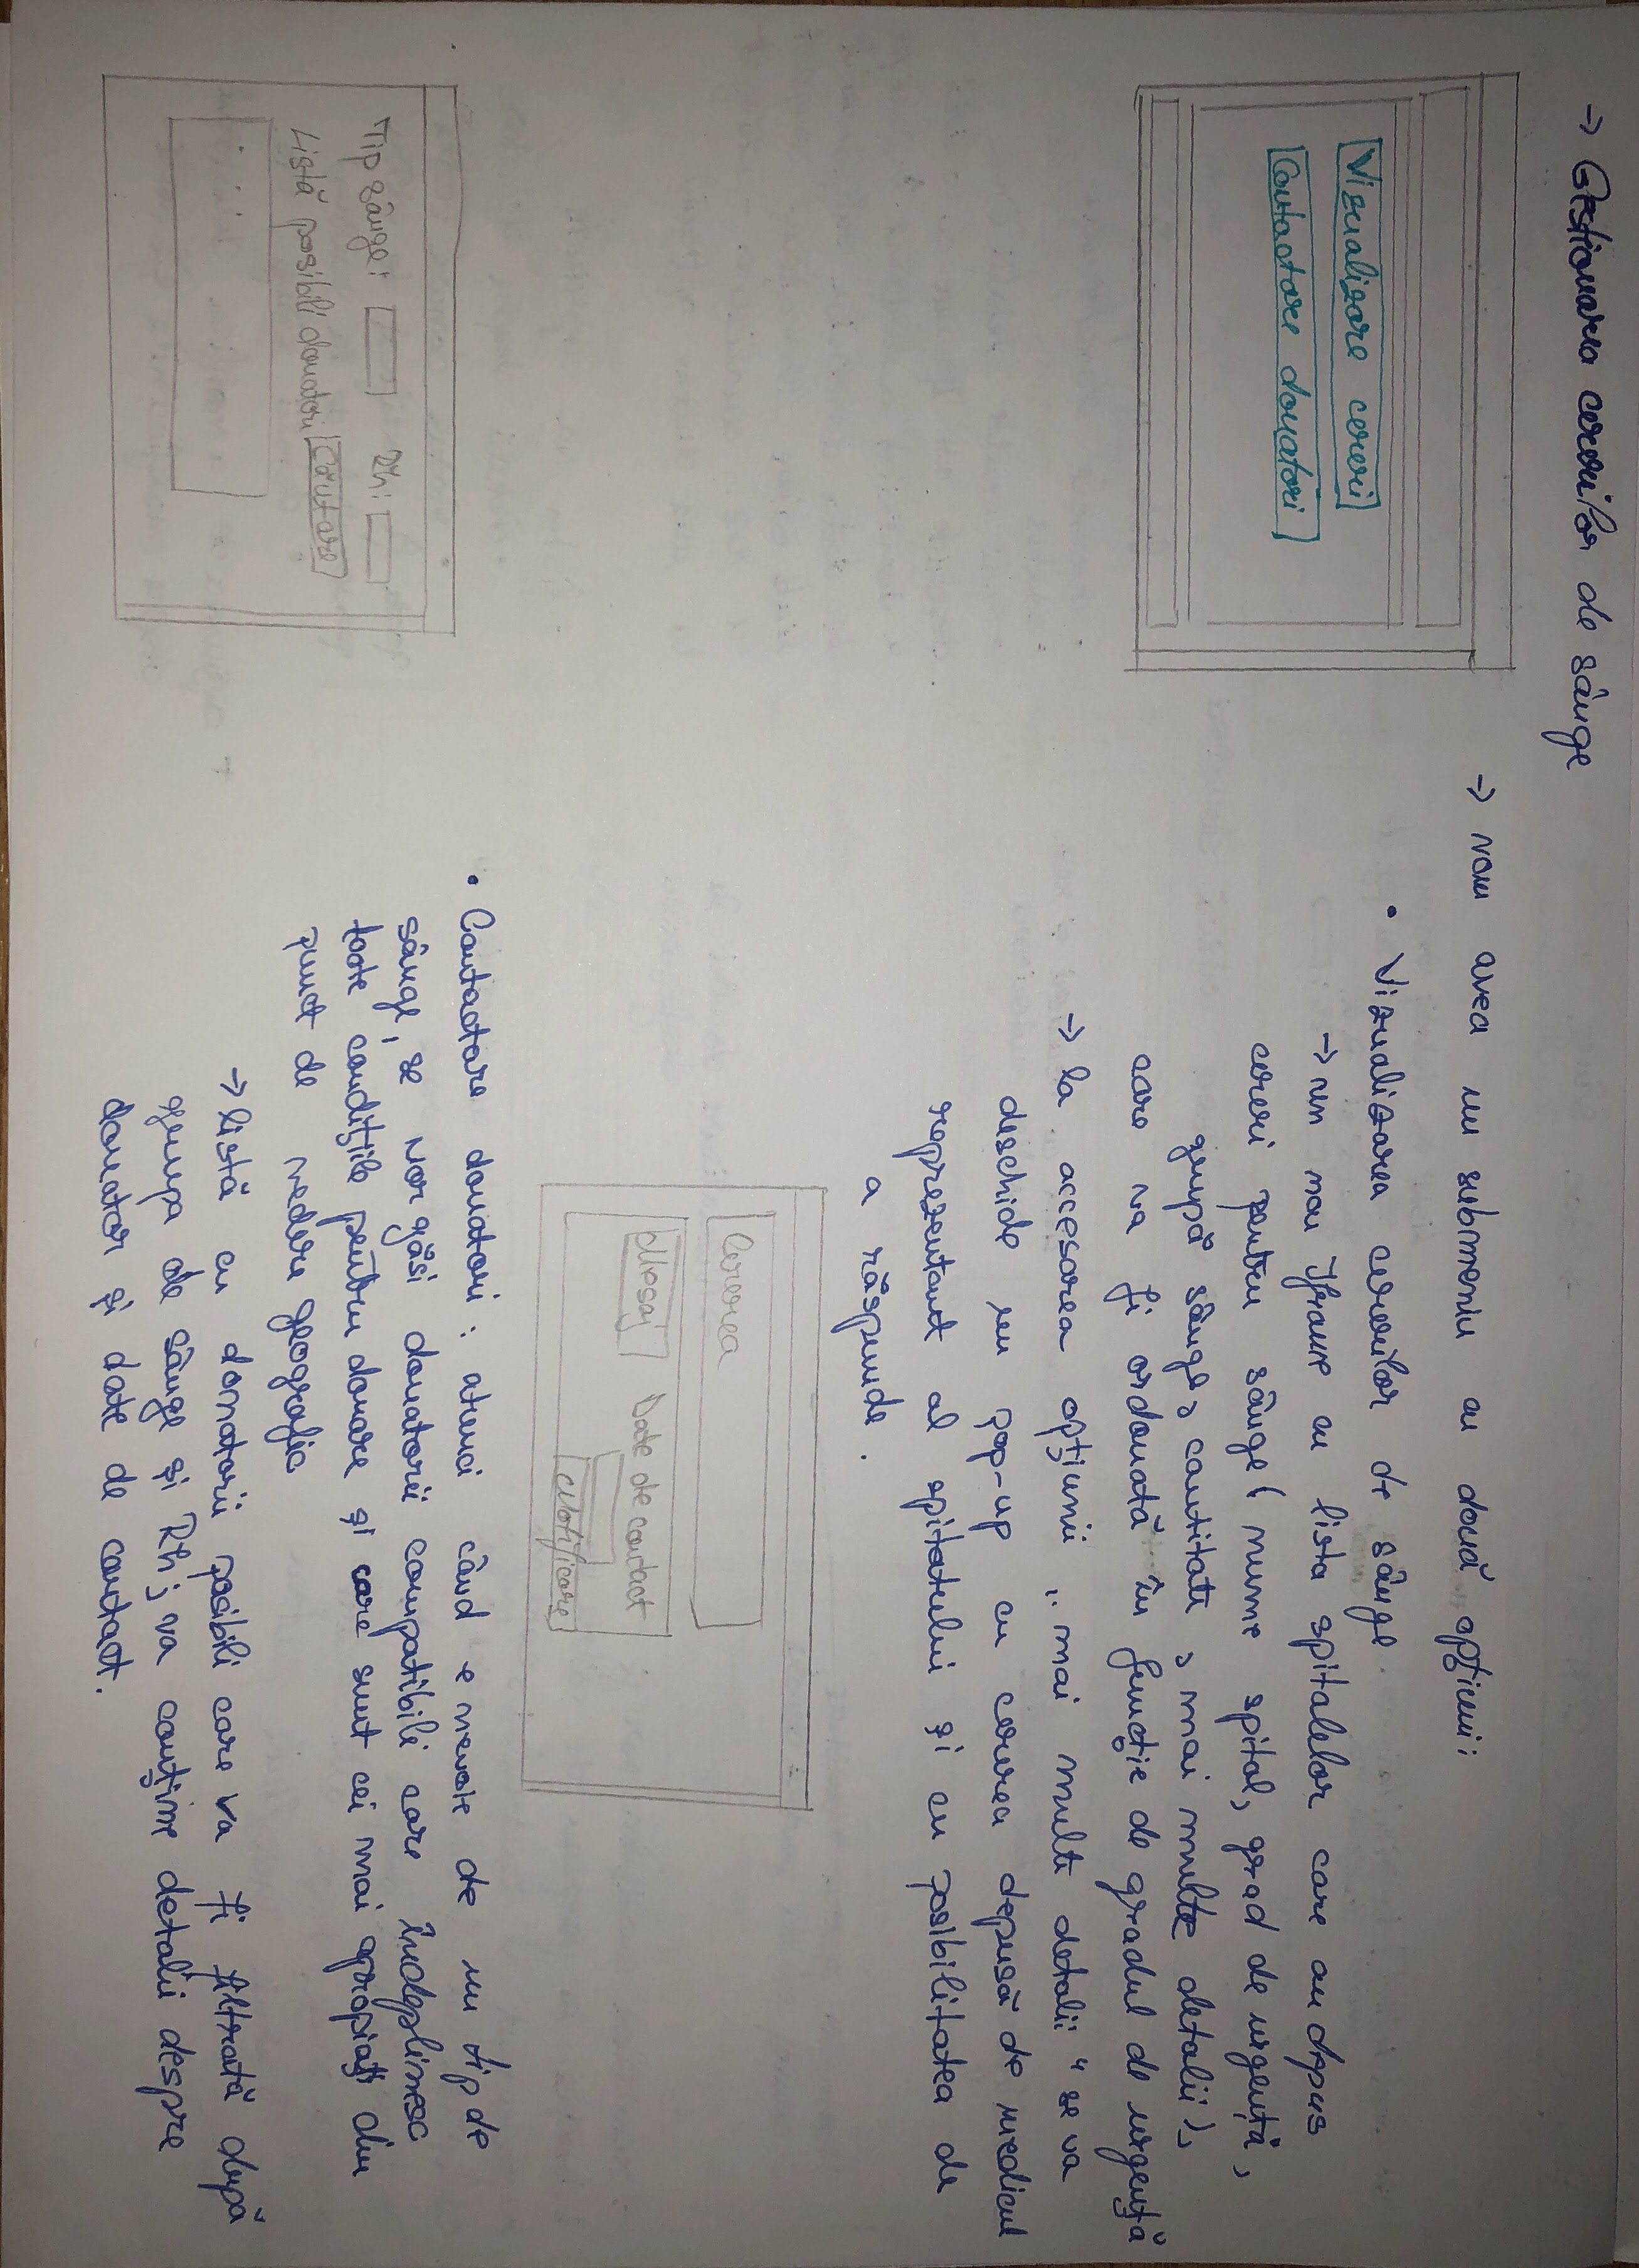 → Gestionarea cererilor de sânge
Vizualizare cereri
Contactare donatori
→ vom avea un submeniu cu două opțiuni:
• Vizualizarea cererilor de sânge.
→ un nou frame cu lista spitalelor care au depus
cereri pentru sânge (nume spital, grad de urgență,
grupă sânge, cantitate, mai multe detalii),
care va fi ordonată în funcție de gradul de urgență
→ la accesarea opțiunii „mai multe detalii" se va
deschide un pop-up cu cererea depusă de medicul
reprezentant al spitalului și cu posibilitatea de
a răspunde.
Cererea
Mesaj Date de contact
Notificare
• Contactare donatori: atunci când e nevoie de un tip de
sânge, se vor găsi donatorii compatibili care îndeplinesc
toate condițiile pentru donare și care sunt cei mai apropiați din
punct de vedere geografic
Tip sânge: Rh:
Listă posibili donatori Căutare
→ listă cu donatorii posibili care va fi filtrată după
grupa de sânge și Rh; va conține detalii despre
donator și date de contact.